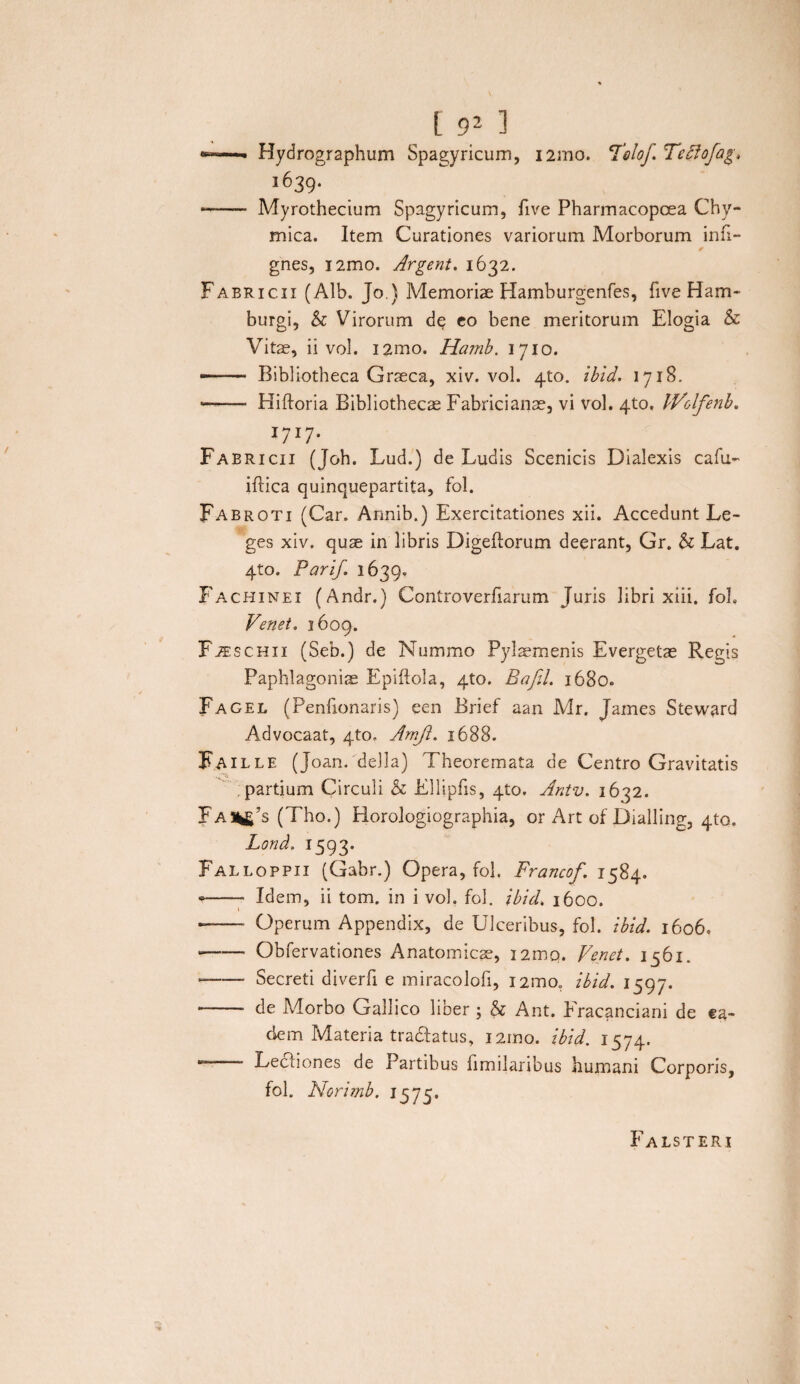 [ 92 ]
—— Hydrographum Spagyricum, 12mo. Tolof. Tectofag.
1639.
—— Myrothecium Spagyricum, ſive Pharmacopœa Chy-
mica. Item Curationes variorum Morborum inſi-
gnes, 12mo. Argent. 1632.
FABRICII (Alb. Jo.) Memoriæ Hamburgenſes, ſive Ham-
burgi, & Virorum de eo bene meritorum Elogia &
Vitæ, ii vol. 12mo. Hamb. 1710.
—— Bibliotheca Græca, xiv. vol. 4to. ibid. 1718.
—— Hiſtoria Bibliothecæ Fabricianæ, vi vol. 4to. Wolfenb.
1717.
FABRICII (Joh. Lud.) de Ludis Scenicis Dialexis caſu-
iſtica quinquepartita, fol.
FABROTI (Car. Annib.) Exercitationes xii. Accedunt Le-
ges xiv. quæ in libris Digeſtorum deerant, Gr. & Lat.
4to. Pariſ. 1639.
FACHINEI (Andr.) Controverſiarum Juris libri xiii. fol.
Venet. 1609.
FÆSCHII (Seb.) de Nummo Pylæmenis Evergetæ Regis
Paphlagoniæ Epiſtola, 4to. Baſil. 1680.
FAGEL (Penſionaris) een Brief aan Mr. James Steward
Advocaat, 4to. Amſt. 1688.
FAILLE (Joan. della) Theoremata de Centro Gravitatis
partium Circuli & Ellipſis, 4to. Antv. 1632.
(Tho.) Horologiographia, or Art of Dialling, 4to.
Lond. 1593.
FALLOPPII (Gabr.) Opera, fol. Francof. 1584.
—— Idem, ii tom. in i vol. fol. ibid. 1600.
—— Operum Appendix, de Ulceribus, fol. ibid. 1606.
—— Obſervationes Anatomicæ, 12mo. Venet. 1561.
—— Secreti diverſi e miracoloſi, 12mo. ibid. 1597.
—— de Morbo Gallico liber ; & Ant. Fracanciani de ea-
dem Materia tractatus, 12mo. ibid. 1574.
—— Lectiones de Partibus ſimilaribus humani Corporis,
fol. Norimb. 1575.
FALSTERI